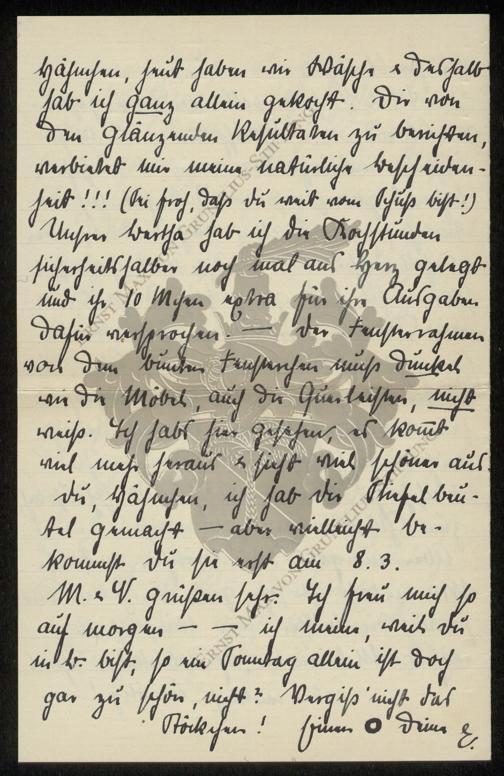 Hähnchen, heut haben wir Wäsche & deshalb
hab ich ganz allein gekocht. Dir von
den glänzenden Resultaten zu berichten,
verbietet mir meine natürliche Bescheiden-
heit!!! (Sei froh, daß du weit vom Schuß bist!)
Unsrer Bertha hab ich die Kochstunden
sicherheitshalber noch mal ans Herz gelegt
und ihr 10 M extra für ihre Ausgaben
dafür versprochen. — Der Fensterrahmen
von dem bunten Fensterchen muß dunkel
wie die Möbel, auch die Querleisten, nicht
weiß. Ich habs hier gesehen, es kom̄t
viel mehr heraus & sieht viel schöner aus.
Du, Hähnchen, ich hab dir Stiefelbeu-
tel gemacht — aber vielleicht be-
kommst du sie erst am 8. 3.
M. & V. grüßen sehr. Ich freu mich so
auf morgen — — ich meine, weil du
in B. bist, so ein Sonntag allein ist doch
gar zu schön, nicht? Vergiß nicht das
Röckchen! Einen O Deine E.
ERNST MAX VON GRUNELIUS-STIFTUNG
ERNST MAX VON GRUNELIUS-STIFTUNG